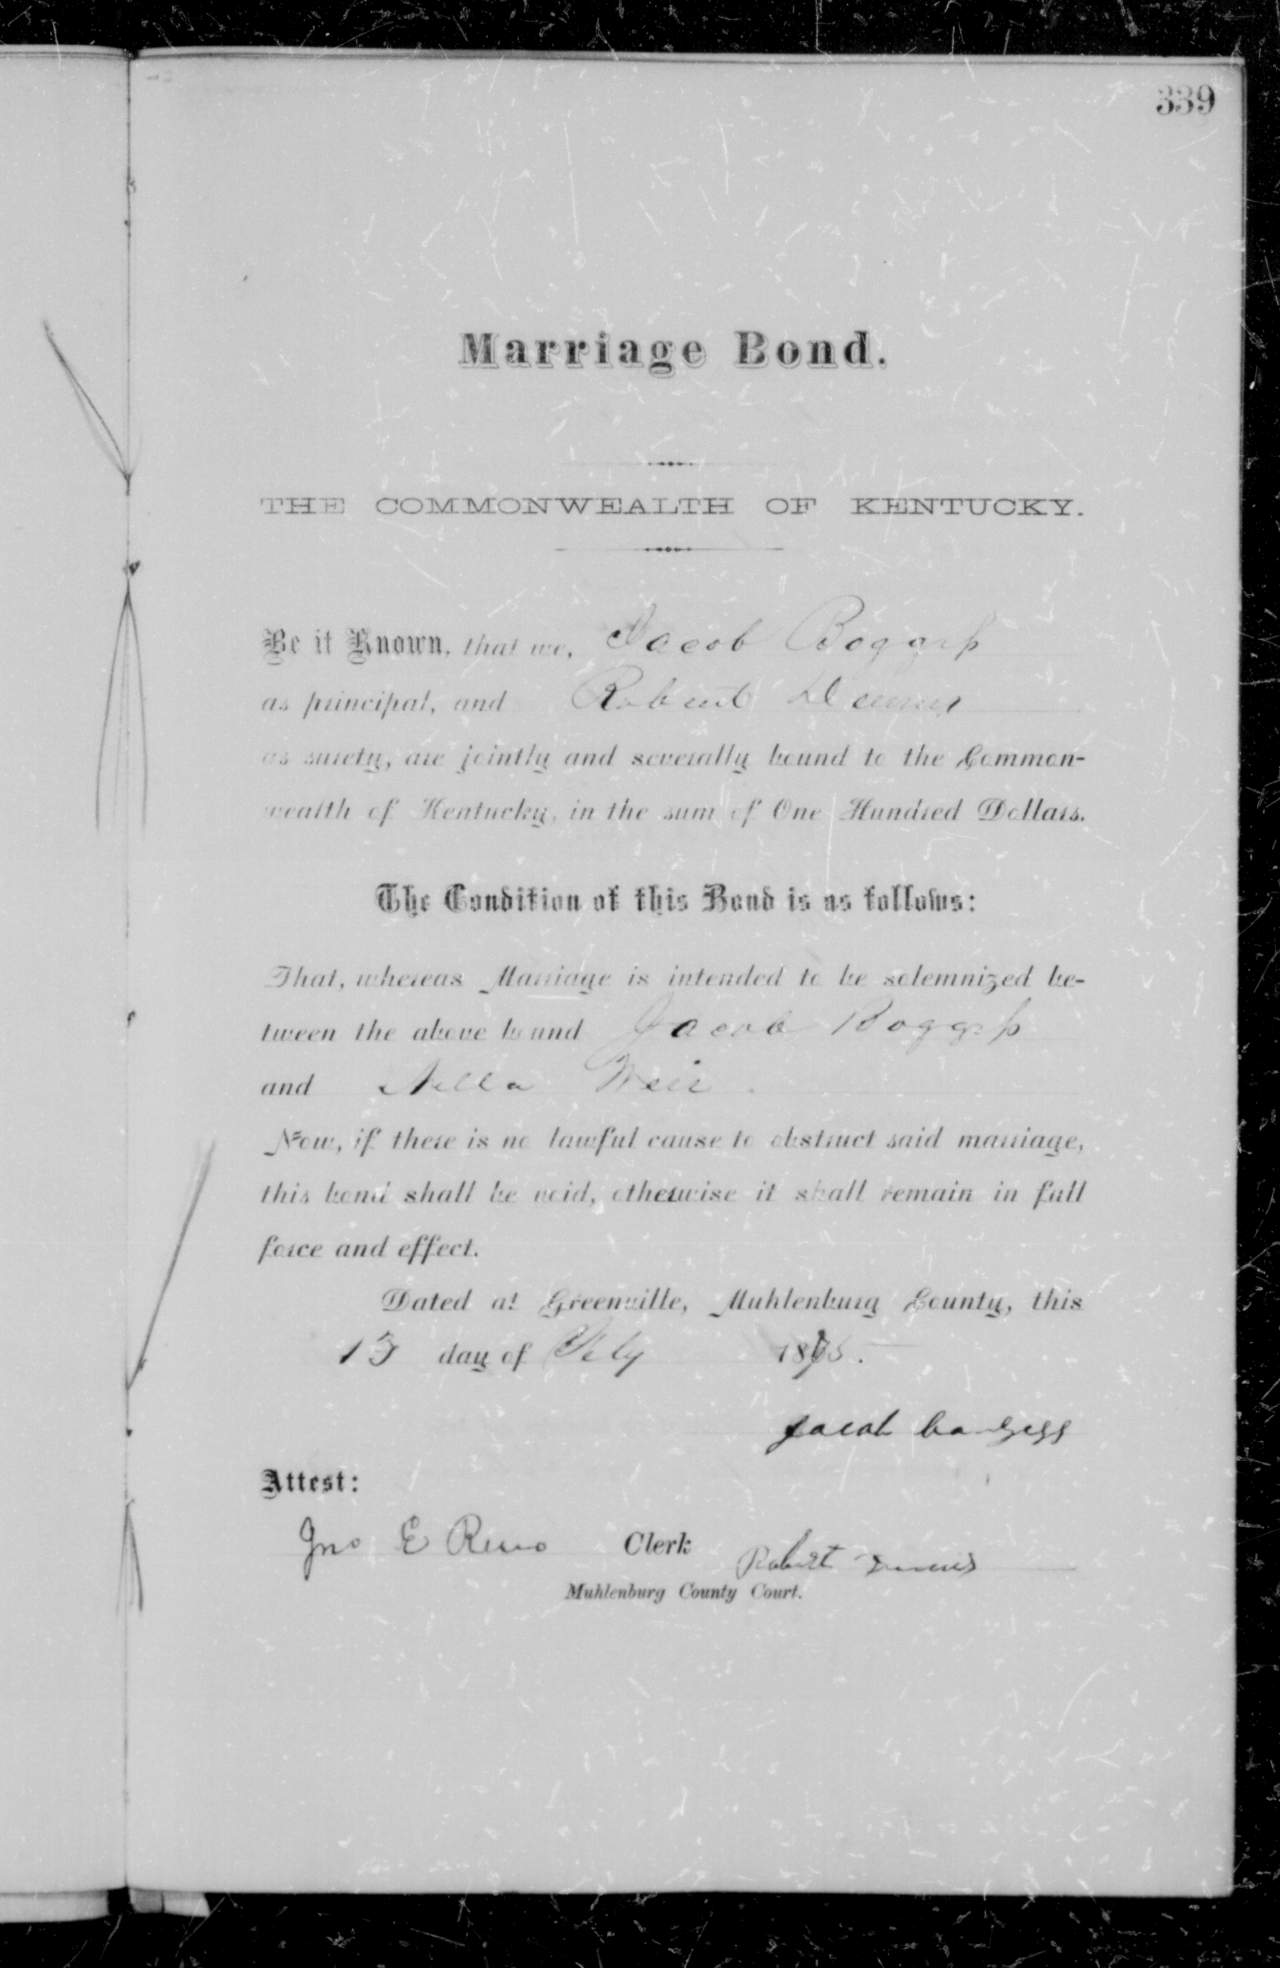 339
Marriage Bond.
THE COMMONWEALTH OF KENTUCKY.
Be it Known, that we, Jacob Boggess
as principal, and Robert Dennis
as surety, are jointly and severally bound to the Common-
wealth of Kentucky, in the sum of One Hundred Dollars.
The Condition of this Bond is as follows:
That, whereas Marriage is intended to be solemnized be-
tween the above bound Jacob Boggess
and Nella Weir
Now, if there is no lawful cause to obstruct said marriage,
this bond shall be void, otherwise it shall remain in full
force and effect.
Dated at Greenville, Muhlenburg County, this
13 day of Feby 1875.
Jacob
Attest:
Jno E Reno Clerk Robert Dennis
Muhlenburg County Court.